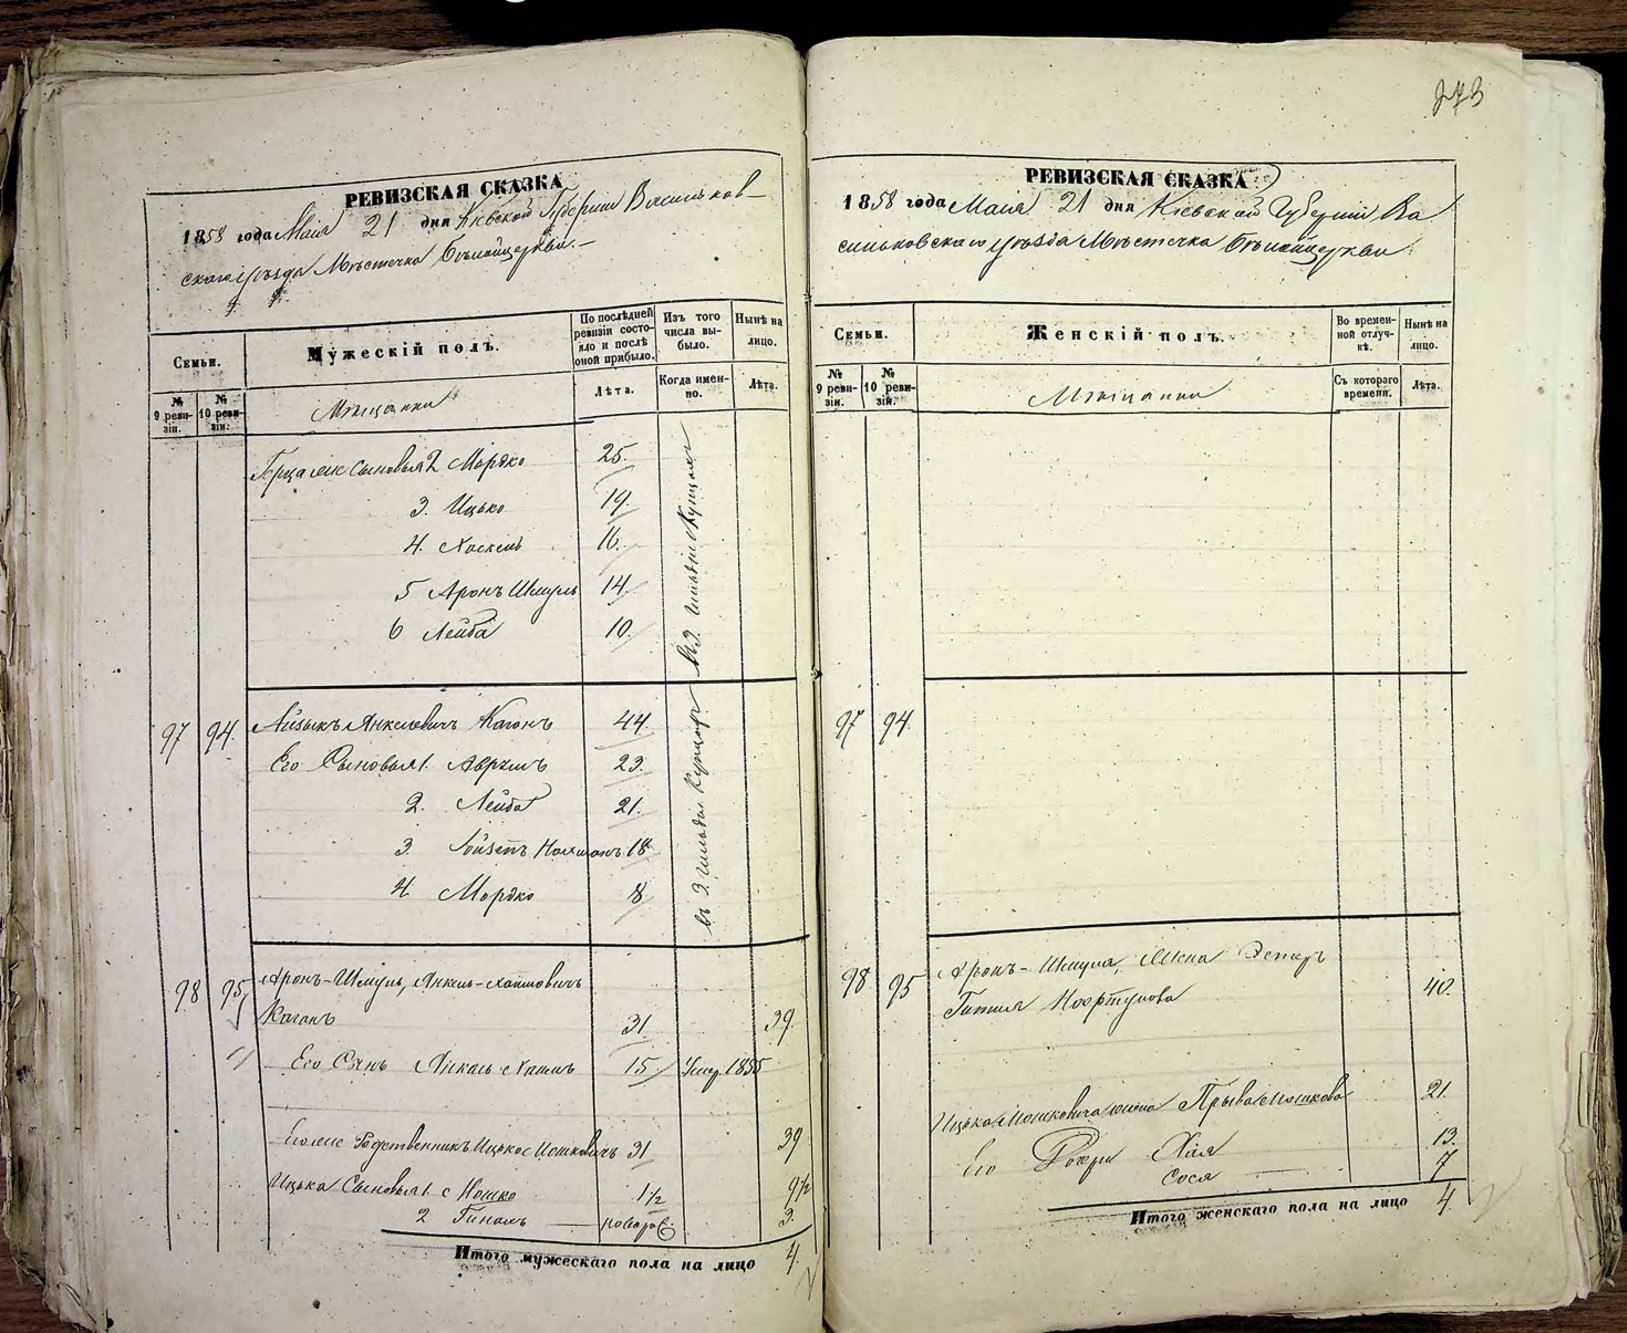 273
РЕВИЗСКАЯ СКАЗКА
1858 года Маія 21 дня Кіевской Губерніи Васильков-
скаго уѣзда Мѣстечка Бѣлойцеркви.-
Семьи.
Мужескій полъ.
По послѣдней ревизіи состояло и послѣ оной прибыло.
Изъ того числа выбыло.
Нынѣ на лицо.
№ 9 ревизіи.
№ 10 ревизіи.
Мѣщанки
Лѣта.
Когда именно.
Лѣта.
сыновья 2 Мордко 25.
3. Ицько 19.
4. Хаскель 16.
5 Аронъ Шмуль 14.
6 Лейба 10.
97 94. Айзыкъ Янкелевичъ Каганъ 44.
Его Сыновья 1. Аврумъ 23.
2. Лейба 21.
3. Нахманъ 18
4 Мордко 8.
въ 3. гильдіи Купцахъ
98 95 Аронъ-Шмуль, Янкель-Хаимовичъ
Каганъ 31. 39.
Его Сынъ Янкель Хаимъ 15. Умер. 1855
Его же Родственникъ Ицько Мошковичъ 31 39
Ицька Сыновья 1. Мошко 1½ 9½
2 новорож. 3.
Итого мужескаго пола на лицо 4.
РЕВИЗСКАЯ СКАЗКА
1858 года Маія 21 дня Кіевской Губерніи Ва
сильковскаго уѣзда Мѣстечка Бѣлойцеркви.
Семьи.
Женскій полъ.
Во временной отлучкѣ.
Нынѣ на лицо.
№ 9 ревизіи.
№ 10 ревизіи.
Мѣщанки
Съ котораго времени.
Лѣта.
97 94.
98 95 Аронъ-Шмуля, Жена Эстеръ
Гитля 40.
Ицька Мошковича жена Мошкова 21.
Его Дочери Хая 13.
Сося 7
Итого женскаго пола на лицо 4.